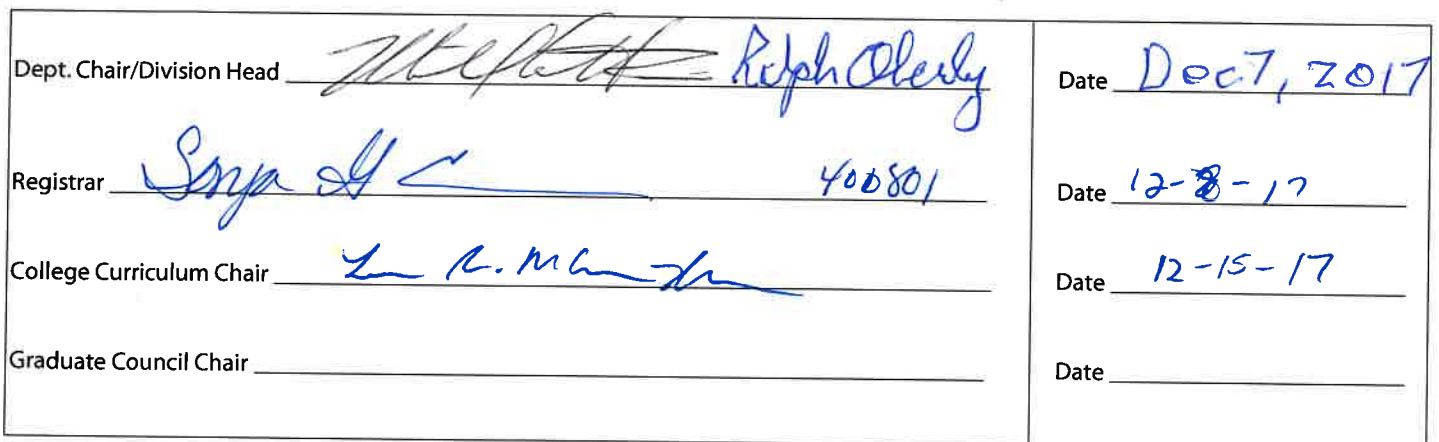 Dept. Chair/Division Head Ralph Oberly Date Dec 7, 2017
Registrar Sonja G 400801 Date 12-8-17
College Curriculum Chair Date 12-15-17
Graduate Council Chair Date